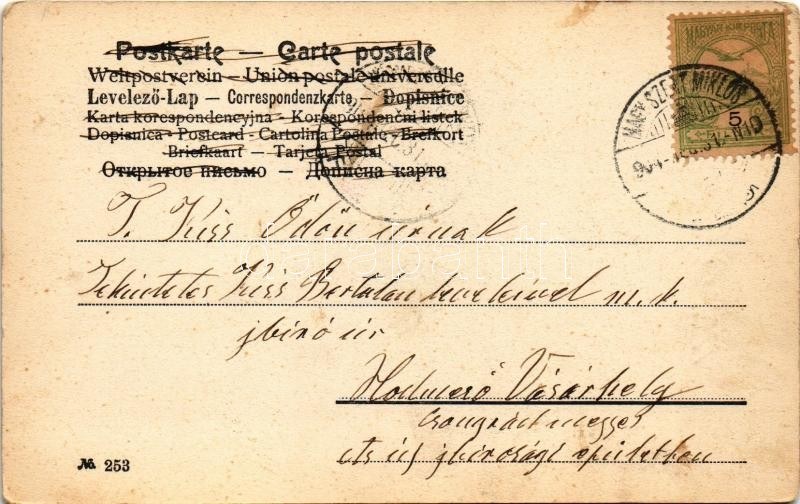 Postkarte — Carte postale
Weltpostverein — Union postale universelle
Levelező-Lap — Correspondenzkarte — Dopisnice
Karta korespondencyjna - Korespondenční listek
Dopisnica - Postcard - Cartolina Postale - Brefkort
Briefkaart — Tarjeta Postal
Открытое письмо — Дописна карта
MAGYAR KIR. POSTA
5
NAGY SZENT MIKLÓS
T. Kiss Ödön úrnak
Tekintetes Kiss Bertalan m. k.
jbíró úr
Hódmező Vásárhely
Csongrád megye
jbirósági épületben
No. 253